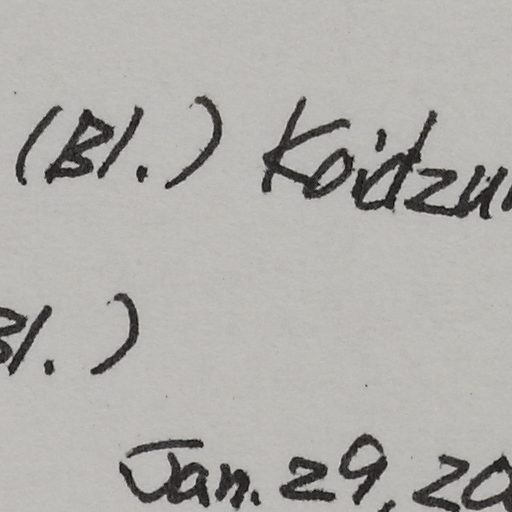 (Bl.) Koidzu
Bl.)
Jan. 29, 20